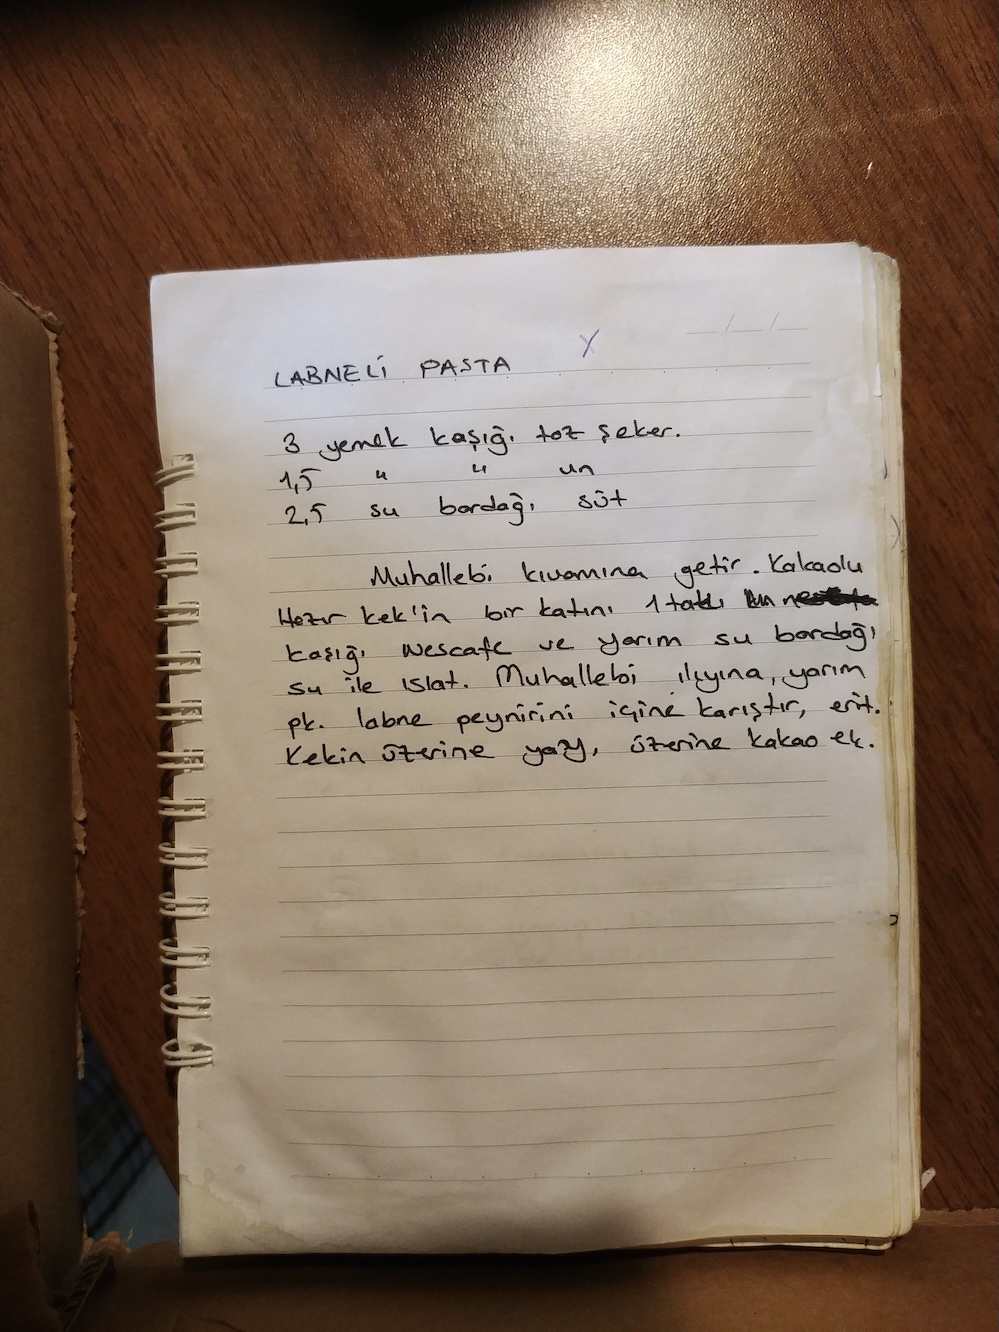 LABNELİ PASTA
3 yemek kaşığı toz şeker.
1,5 " " un
2,5 su bardağı süt
Muhallebi kıvamına getir. Kakaolu
Hazır kek'in bir katını 1 tatlı
kaşığı nescafe ve yarım su bardağı
su ile ıslat. Muhallebi ılıyına, yarım
pk. labne peynirini içine karıştır, erit.
Kekin üzerine yay, üzerine kakao ek.